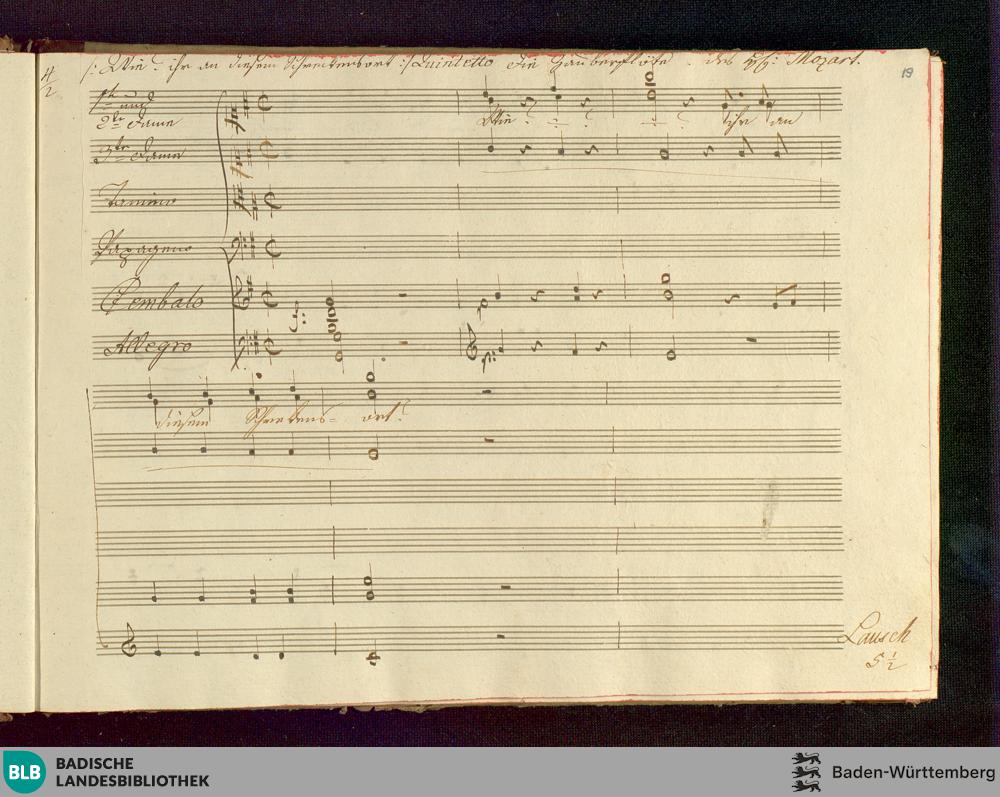 4/2
/: Wie? ihr an diesem Schreckensort :/ Quintetto Die Zauberflöte. des H: Mozart.
19
1te und
2te Dame
Wie? ihr an
3te Dame
Tamino
Papageno
Cembalo
Allegro
diesem Schreckens= ort?
Lausch
5 1/2
BLB BADISCHE
LANDESBIBLIOTHEK
Baden-Württemberg